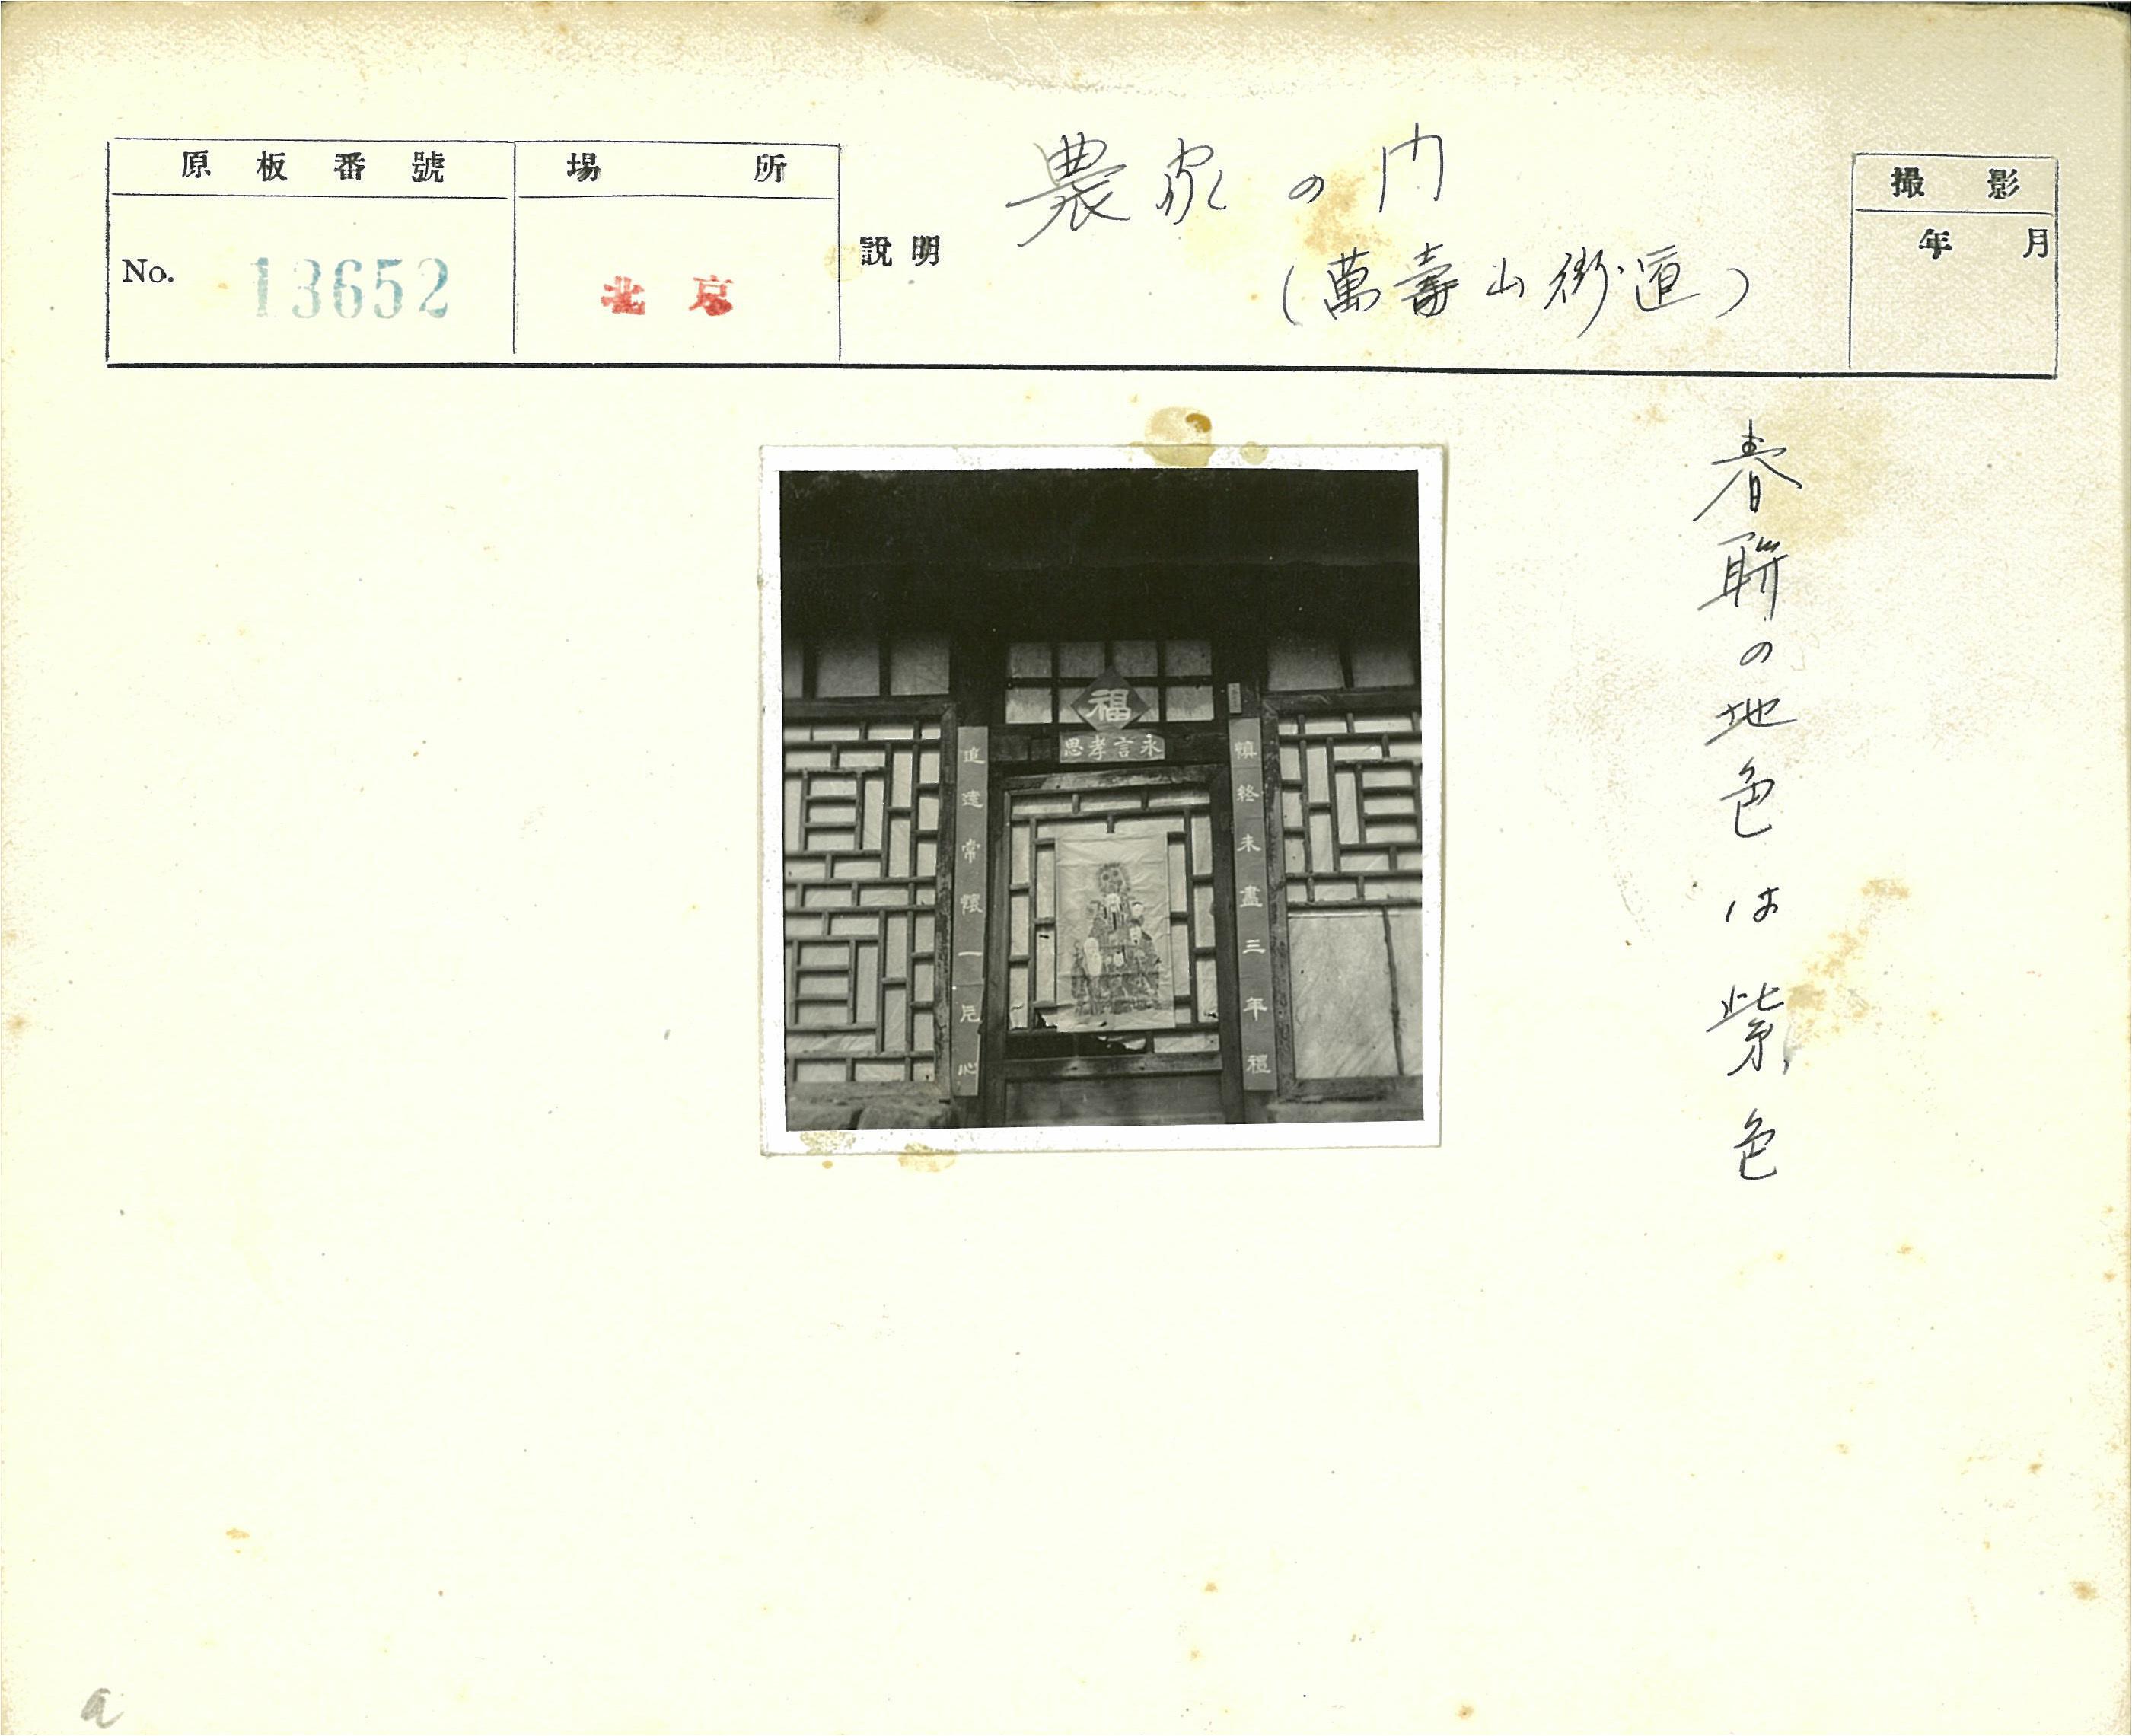 原板番號
場所
No. 13652
北京
説明
農家の門
(萬壽山街道)
撮影
年月
春聯の地色は紫色
福
永言孝思
慎終未盡三年禮
追遠常懷一片心
a